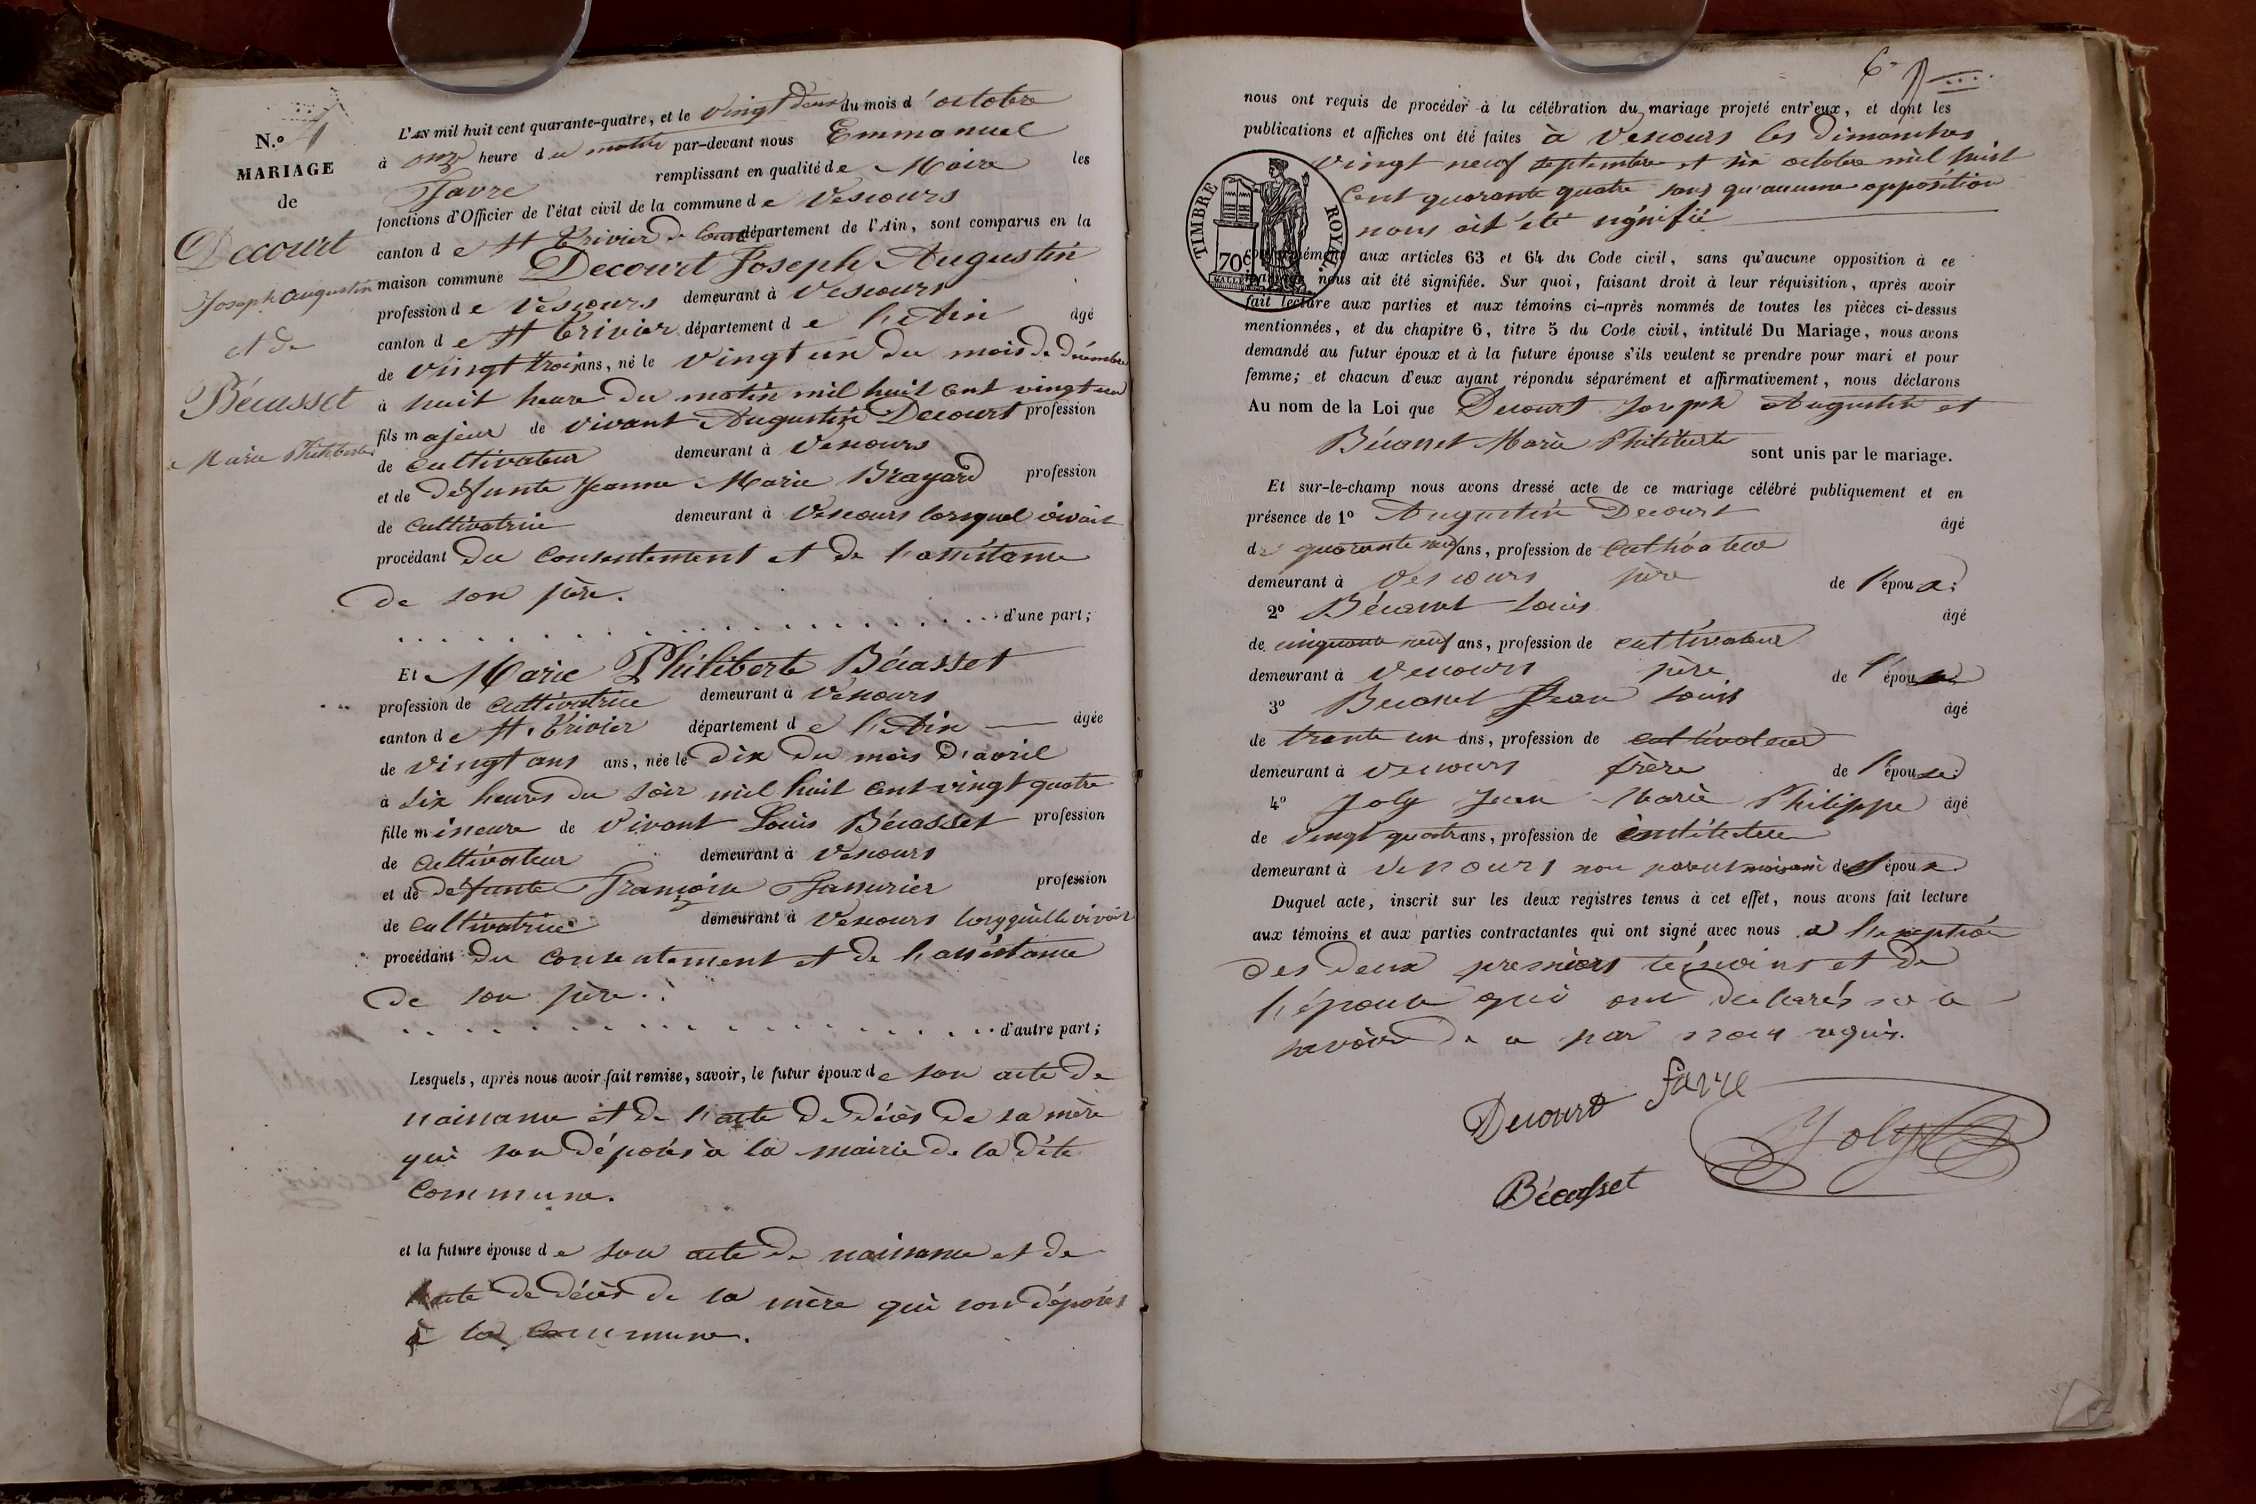 N.º 4
MARIAGE
de
Decourt
Joseph Augustin
et de
Bécasset
Marie Philiberte
L'an mil huit cent quarante-quatre, et le vingt deux du mois d'octobre
à onze heure du matin par-devant nous Emmanuel
Favre remplissant en qualité de Maire les
fonctions d'Officier de l'état civil de la commune de Vescours
canton de St Trivier de Courtes département de l'Ain, sont comparus en la
maison commune Decourt Joseph Augustin
profession de Vescours demeurant à Vescours
canton de St Trivier département de l'Ain âgé
de vingt trois ans, né le vingt un du mois de décembre
à huit heure du matin mil huit cent vingt un
fils majeur de vivant Augustin Decourt profession
de cultivateur demeurant à Vescours
et de défunte Jeanne Marie Brayard profession
de cultivatrice demeurant à Vescours lorsquel vivait
procédant du consentement et de l'assistance
de son père.
d'une part;
Et Marie Philiberte Bécasset
profession de cultivatrice demeurant à Vescours
canton de St Trivier département de l'Ain âgée
de vingt ans ans, née le dix du mois d'avril
à six heures du soir mil huit cent vingt quatre
fille mineure de vivant Louis Bécasset profession
de cultivateur demeurant à Vescours
et de défunte Françoise profession
de cultivatrice demeurant à Vescours lorsqu'elle vivait
procédant du consentement et de l'assistance
de son père.
d'autre part;
Lesquels, après nous avoir fait remise, savoir, le futur époux de son acte de
naissance et de l'acte de décès de sa mère
qui son déposés à la mairie de la dite
commune.
et la future épouse de son acte de naissance et de
l'acte de décès de sa mère qui son déposés
à la commune.
6
nous ont requis de procéder à la célébration du mariage projeté entr'eux, et dont les
publications et affiches ont été faites à Vescours les dimanches
vingt neuf septembre et six octobre mil huit
cent quarante quatre sans qu'aucune opposition
nous ait été signifié
TIMBRE ROYAL.
70c
conformément aux articles 63 et 64 du Code civil, sans qu'aucune opposition à ce
mariage nous ait été signifiée. Sur quoi, faisant droit à leur réquisition, après avoir
fait lecture aux parties et aux témoins ci-après nommés de toutes les pièces ci-dessus
mentionnées, et du chapitre 6, titre 5 du Code civil, intitulé Du Mariage, nous avons
demandé au futur époux et à la future épouse s'ils veulent se prendre pour mari et pour
femme; et chacun d'eux ayant répondu séparément et affirmativement, nous déclarons
Au nom de la Loi que Decourt Joseph Augustin et
Bécasset Marie Philiberte sont unis par le mariage.
Et sur-le-champ nous avons dressé acte de ce mariage célébré publiquement et en
présence de 1º Augustin Decourt âgé
de quarante neuf ans, profession de cultivateur
demeurant à Vescours père de l'époux;
2º Bécasset Louis âgé
de cinquante neuf ans, profession de cultivateur
demeurant à Vescours père de l'épouse
3º Becasset Jean Louis âgé
de trente un ans, profession de cultivateur
demeurant à Vescours frère de l'épouse;
4º Joly Jean Marie Philippe âgé
de vingt quatre ans, profession de instituteur
demeurant à Vescours non parent de l'époux
Duquel acte, inscrit sur les deux registres tenus à cet effet, nous avons fait lecture
aux témoins et aux parties contractantes qui ont signé avec nous à l'exeption
des deux premiers témoins et de
l'épouse qui ont déclarés ne le
savoir de ce par nous requis.
Decourt Favre
Joly
Bécasset